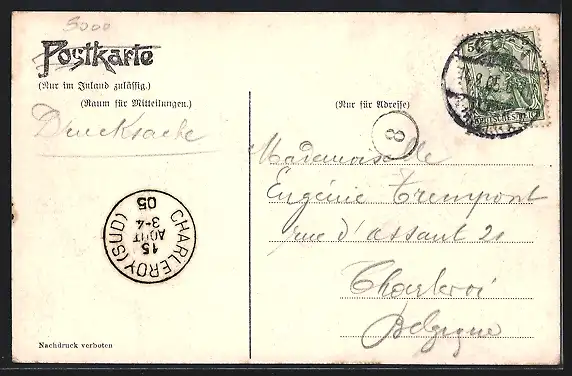 5000
Postkarte
(Nur im Inland zulässig.)
(Raum für Mitteilungen.)
Drucksache
CHARLEROY (SUD)
15
AOUT
3-4
05
Nachdruck verboten
(Nur für Adresse)
8
Mademoiselle
Eugénie Trempont
rue d'assaut 21
Charleroi
Belgique
5